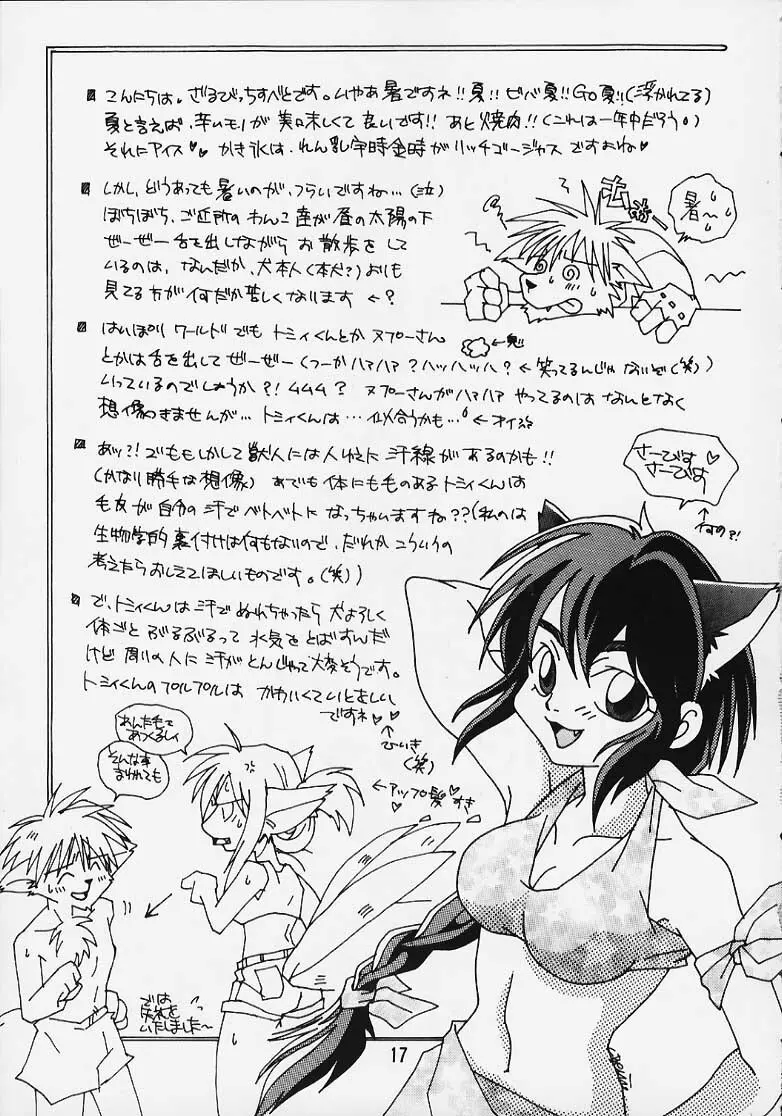 こんにちは。ざるびっちすべとです。いやあ暑ですネ!!夏!!ビバ夏!!Go夏!!(浮かれてる)
夏と言えば、辛いモノが美味しくて良いです!!あと焼肉!!(これは一年中だろう。)
それにアイス♥♥かき氷は、れん乳宇時金時がリッチゴージャスですよね♥
しかし、どうあっても暑いのが、つらいですね…(泣)
ぼちぼち、ご近所のわんこ達が昼の太陽の下
ぜーぜー舌を出しながらお散歩をして
いるのは、なんだか、犬本人(本犬?)よりも
見てる方が何だか苦しくなります ←?
暑〜〜
はいぱぁりワールドでもトミィくんとかヌプーさん
とかは舌を出してぜーぜー(つーかハァハァ?ハッハッハ?←笑ってるんじゃないぞ(笑))
いっているのでしょうか?!ムムム?ヌプーさんがハァハァやってるのはなんとなく
想像つきませんが…トミィくんは…似合うかも…←オイ
あッ?!でももしかして獣人には人並に汗線があるのかも!!
(かなり勝手な想像)あでも体にも毛のあるトミィくんは
毛皮が自分の汗でベトベトになっちゃいますね??(私のは
生物学的裏付けは何もないので、だれかこういうの
考えたらおしえてほしいものです。(笑))
さーびす♥
さーびす
↑何の?!
で、トミィくんは汗でぬれちゃったら犬よろしく
体ごとぶるぶるって水気をとばすんだ
けど周りの人に汗がとんじゃって大変そうです。
トミィくんのプルプルはかわいくていとおしい
ですネ♥♥
↑ひいき(笑)
←アップ髪♥すき
あんた毛で
あつくるしく
そんな事
言われても
では
失礼を
いたしました〜
17